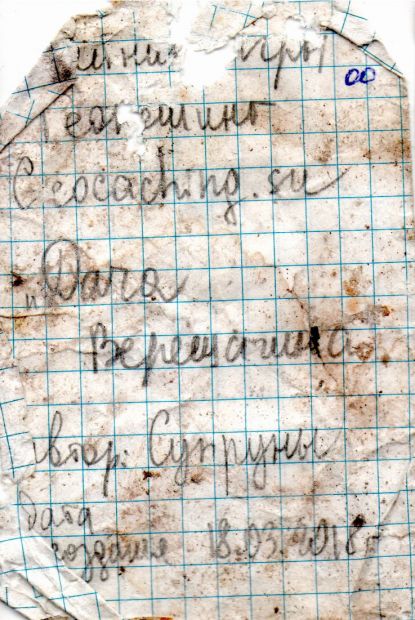 игры
00
Геокешинг
Geocaching.su
"Дача
Верещагина
автор: Супруны
дата
создания 18.03.2018г